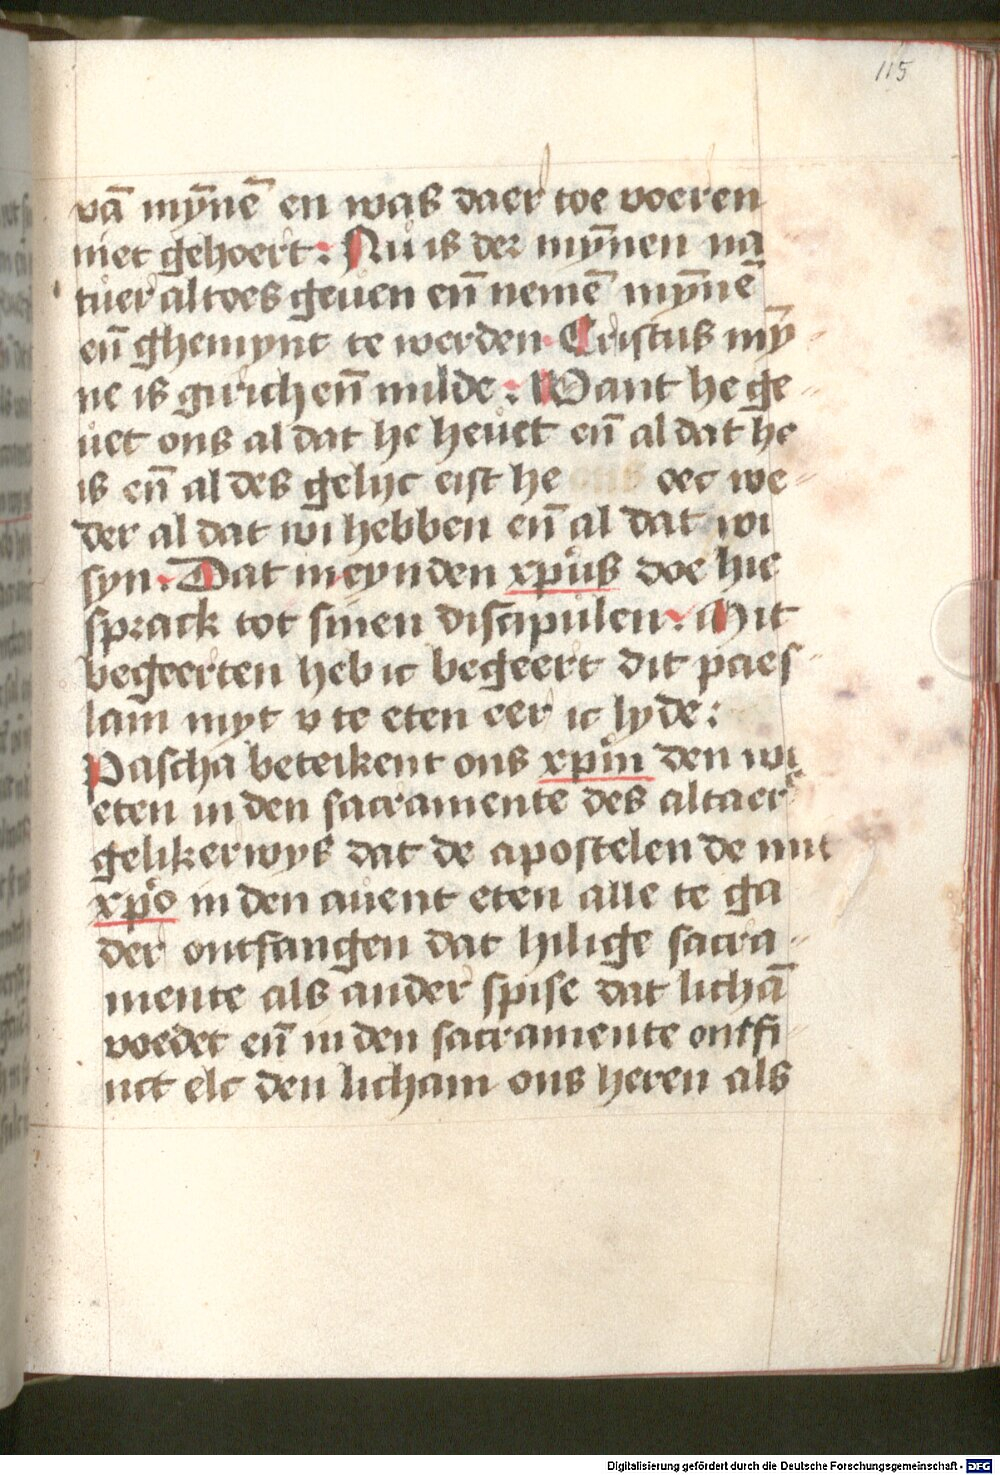 115
vā mȳnē en was daer toe voeren
niet gehoert: Nu is der mȳnen na
tuer altoes geuen eñ nemē mȳnē
eñ ghemynt te werden. Cristus mȳ-
ne is girich eñ milde: Want he ge-
uet ons al dat he heuet eñ al dat he
is eñ al des gelijc eist he ons oec we-
der al dat wi hebben eñ al dat wi
syn. Dat meynden xpus doe hie
sprack tot sinen discipulen. Mit
begeerten heb ic begeert dit paes-
lam myt v te eten eer ic lyde:
Pascha beteikent ons xpm den wi
eten in den sacramente des altaers
gelikerwys dat de apostelen de mit
xpo in den auent eten alle te ga
der ontfangen dat hilige sacra-
mente als ander spise dat lichā
voedet eñ in den sacramente ontfi-
nct elc den licham ons heren als
Digitalisierung gefördert durch die Deutsche Forschungsgemeinschaft - DFG